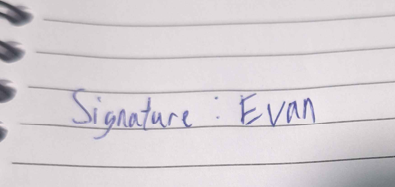 Signature : Evan